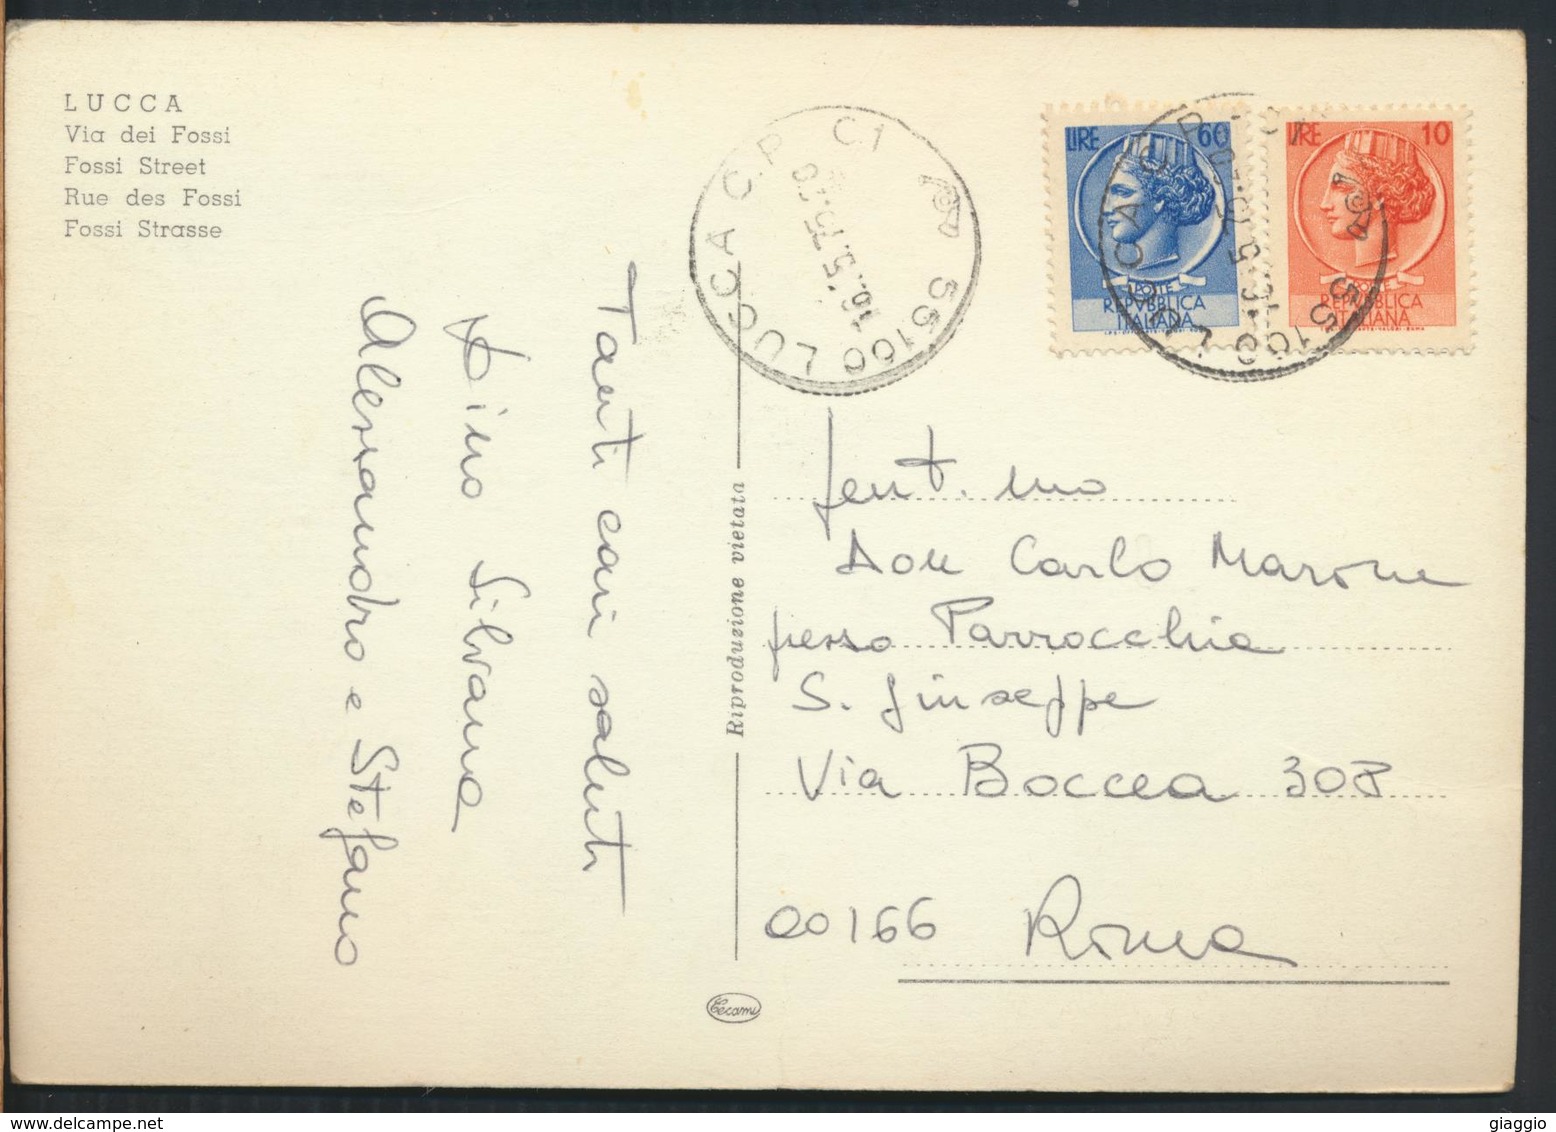 LUCCA
Via dei Fossi
Fossi Street
Rue des Fossi
Fossi Strasse
Tanti cari saluti
Silvana
Alessandro e Stefano
Riproduzione vietata
Tecami
55100 LUCCA C.P. C1
16.5.75
LIRE 60
POSTE
REPVBBLICA
ITALIANA
LIRE 10
POSTE
REPVBBLICA
ITALIANA
55100 LUCCA C.P.
Gent.mo
Don Carlo Marone
presso Parrocchia
S. Giuseppe
Via Boccea 308
00166 Roma
giaggio